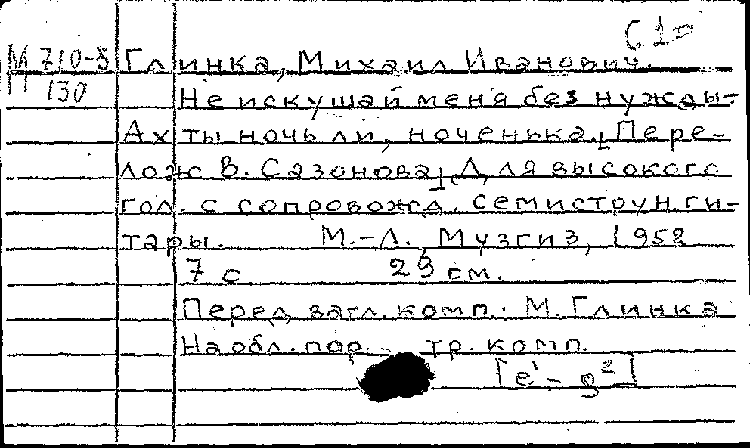 С1=
М 710-8 Глинка, Михаил Иванович.
П 130
Не искушай меня без нужды.-
Ах ты ночь ли, ноченька. Пере-
лож В. Сазонова. Для высокого
гол. с сопровожд. семиструн. ги-
тары. М.-Л., Музгиз, 1952
7 с 29 см.
Перед загл. комп.: М. Глинка
На обл. пор. тр. комп.
[e¹ - g²]